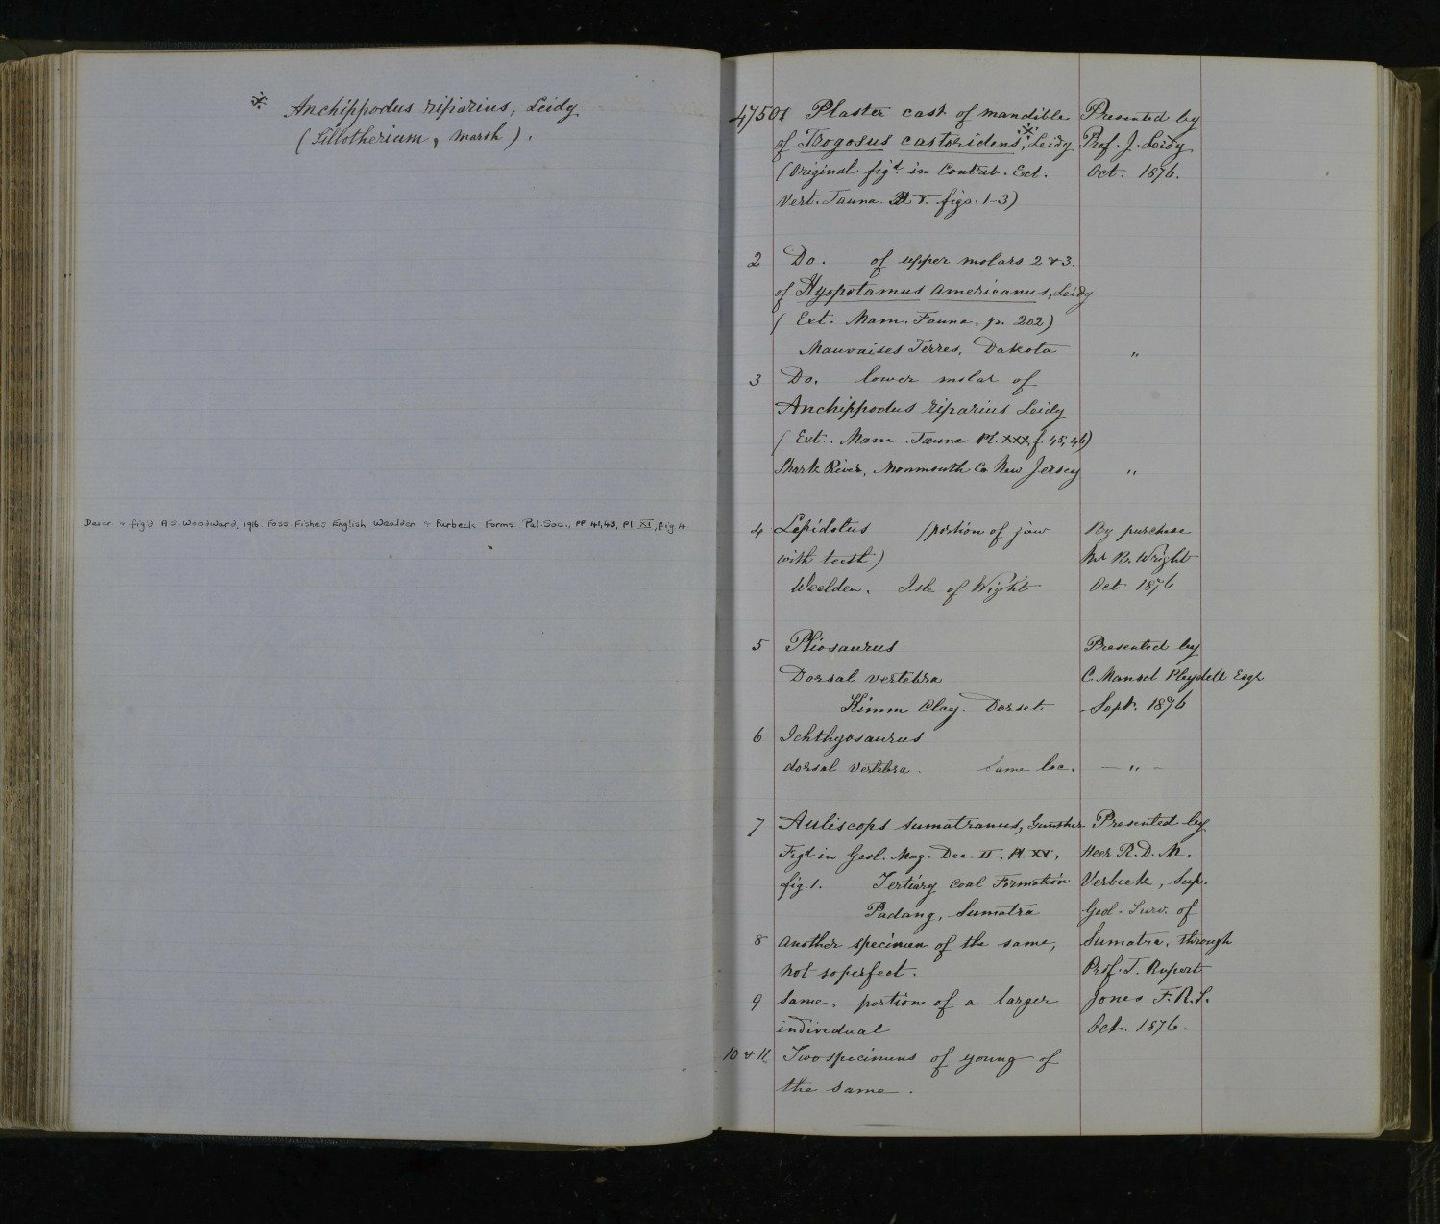 * Anchippodus riparius, Leidy
(Tillotherium, Marsh).
Descr & fig'd A S Woodward, 1916. Foss Fishes English Wealden & Purbeck Forms. Pal. Soc., pp 41,43, Pl XI, fig. 4
47501 Plaster cast of mandible Presented by
of Trogosus castoridens*, Leidy Prof. J. Leidy
(Original figd in Contrib. Ext. Oct. 1876.
Vert. Fauna. Pl V. figs. 1-3)
2 Do. of upper molars 2 & 3.
of Hyopotamus Americanus, Leidy
( Ext. Mam. Fauna. p. 202)
Mauvaises Terres, Dakota "
3 Do. lower molar of
Anchippodus riparius Leidy
( Ext. Mam. Fauna Pl. XXX, f. 45, 46)
Shark River, Monmouth Co New Jersey "
4 Lepidotus (portion of jaw By purchase
with teeth) Mr R. Wright
Wealden. Isle of Wight Oct 1876
5 Pliosaurus Presented by
Dorsal vertebra C. Mansel Pleydell Esqr
Kimm Clay. Dorset. Sept. 1876
6 Ichthyosaurus
dorsal vertebra. Same loc. — " —
7 Auliscops sumatranus, Gunther Presented by
Figd in Geol. Mag. Dec. II. Pl XV, Heer R. D. M.
fig 1. Tertiary Coal Formation Verbeek, Sup.
Padang, Sumatra Geol. Surv. of
8 another specimen of the same, Sumatra, through
not so perfect. Prof. T. Rupert
9 Same. portion of a larger Jones F.R.S.
individual Oct. 1876.
10 & 11 Two specimens of young of
the same.